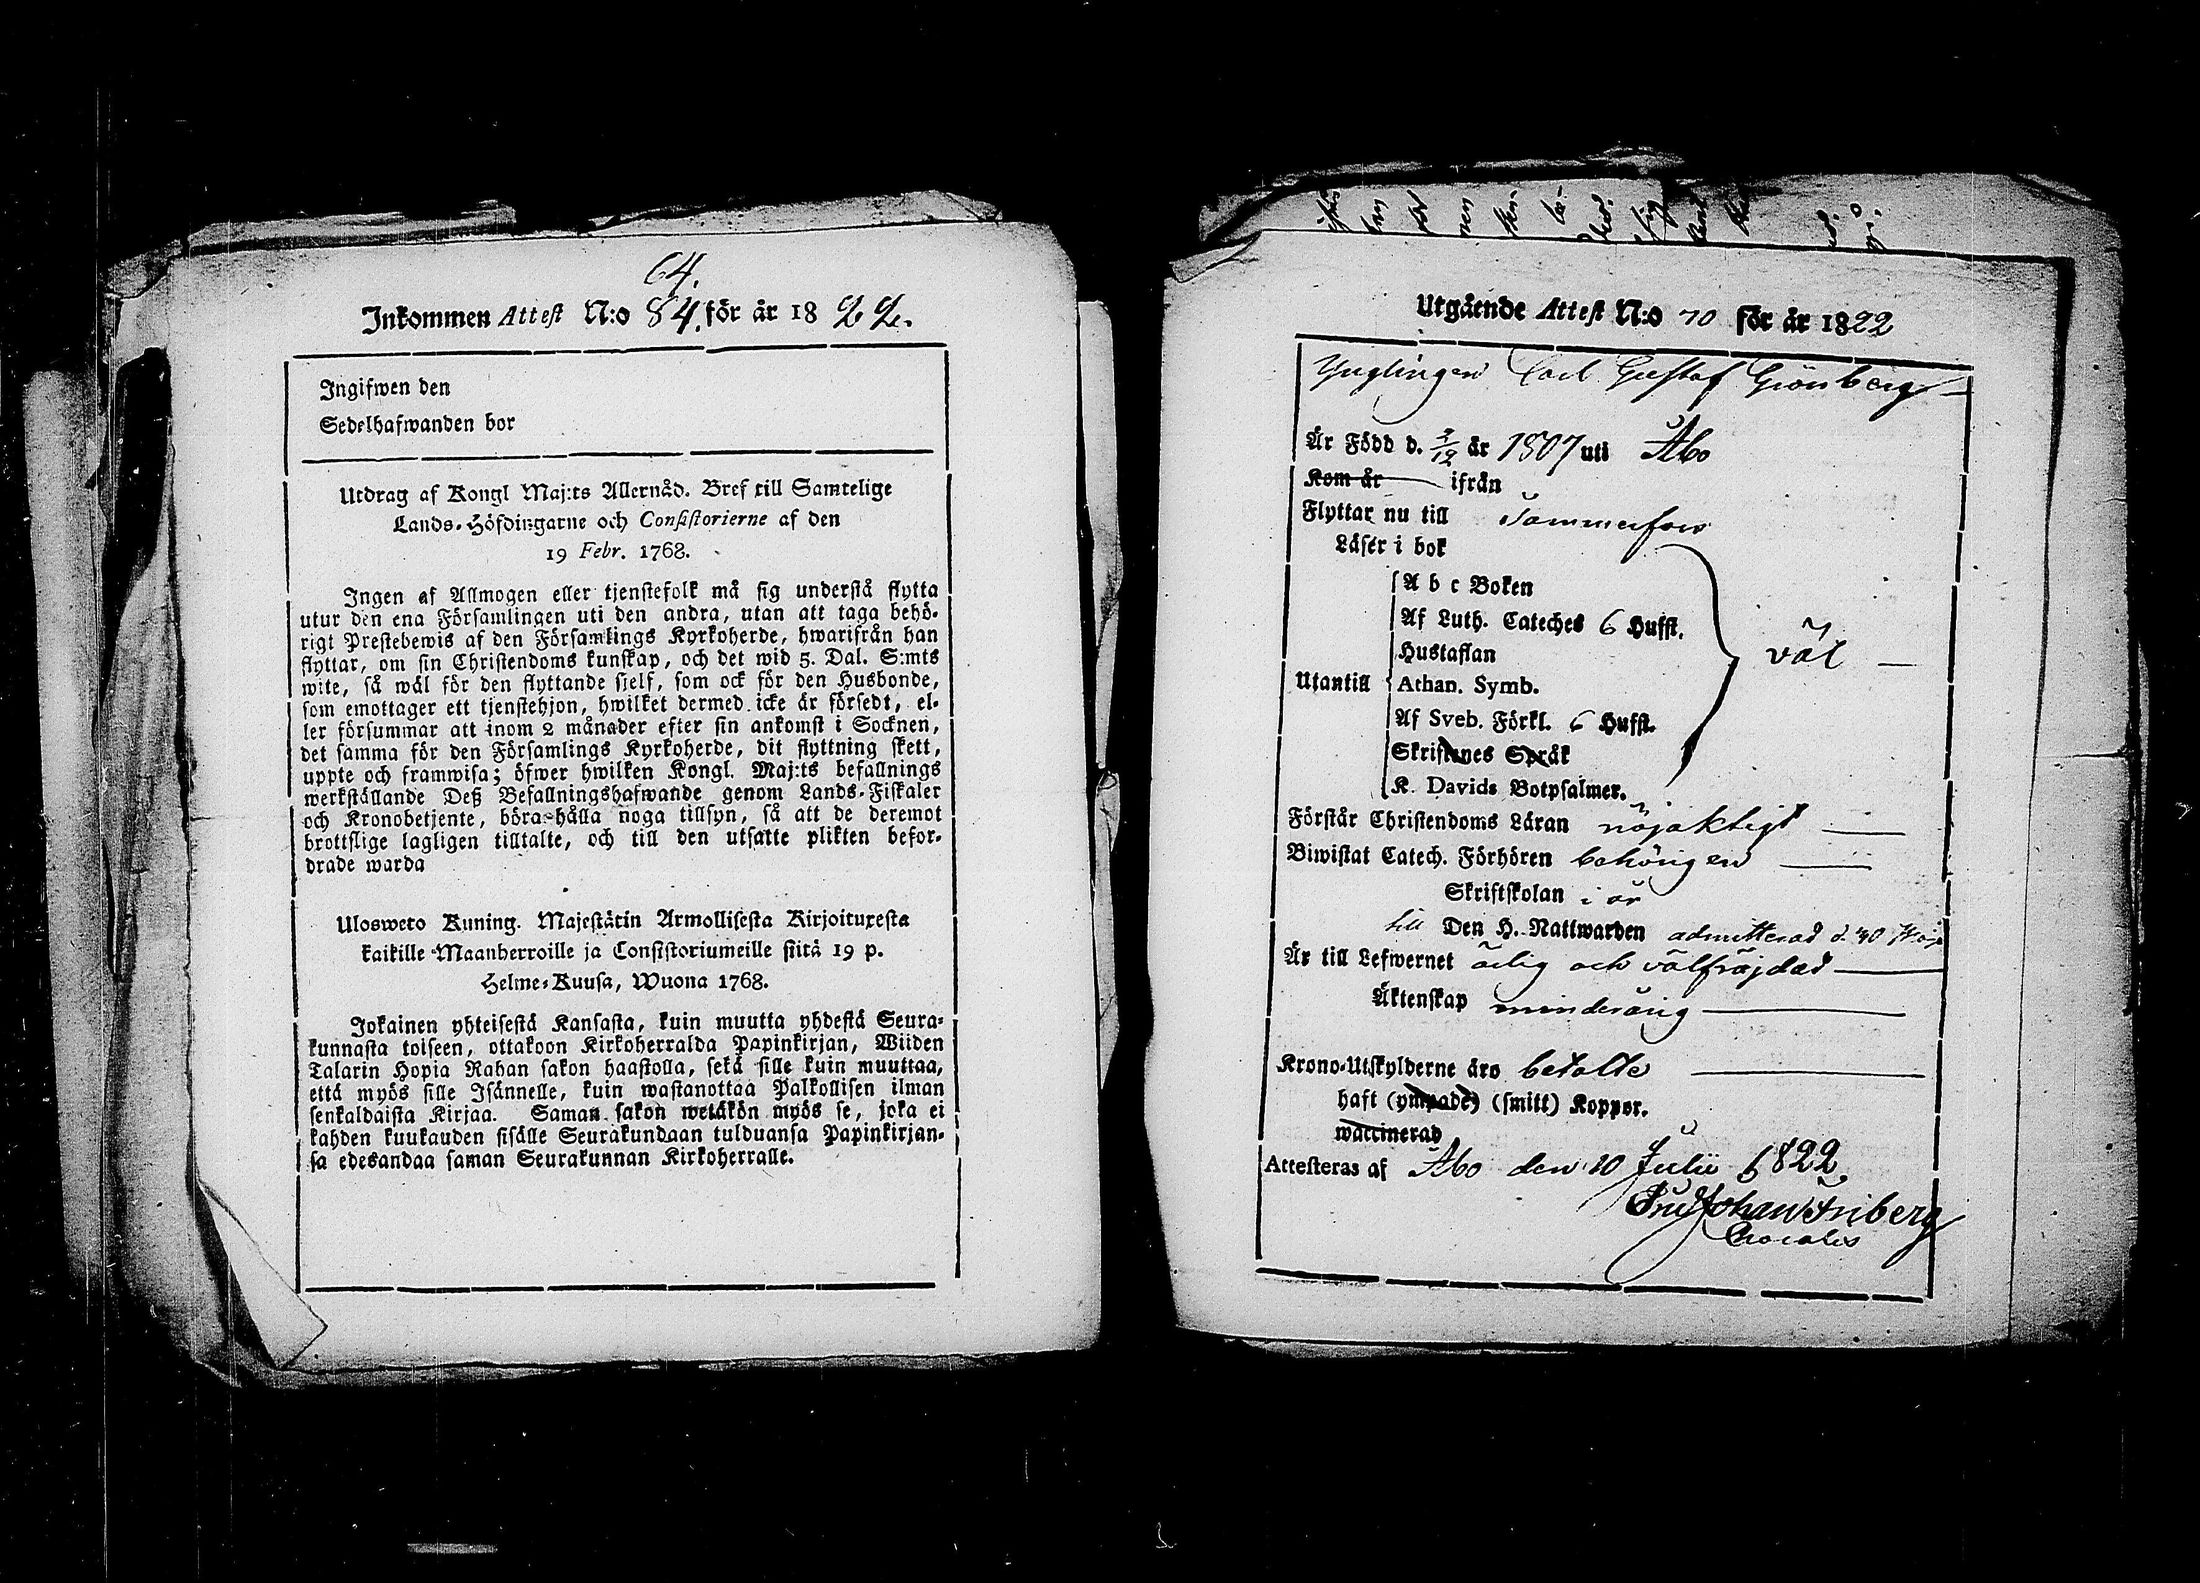 64.
Inkommen Attest N:o 84. för år 1822.
Ingifwen den
Sedelhafwanden bor
Utdrag af Kongl Maj:ts Allernåd. Bref till Samtelige
Lands-Höfdingarne och Consistorierne af den
19 Febr. 1768.
Ingen af Allmogen eller tjenstefolk må sig understå flytta
utur den ena Församlingen uti den andra, utan att taga behö-
rigt Prestebewis af den Församlings Kyrkoherde, hwarifrån han
flyttar, om sin Christendoms kunskap, och det wid 5. Dal. S:mts
wite, så wäl för den flyttande sjelf, som ock för den Husbonde,
som emottager ett tjenstehjon, hwilket dermed icke är försedt, el-
ler försummar att inom 2 månader efter sin ankomst i Socknen,
det samma för den Församlings Kyrkoherde, dit flyttning skett,
uppte och framwisa; öfwer hwilken Kongl. Maj:ts befallnings
werkställande Deß Befallningshafwande genom Lands-Fiskaler
och Kronobetjente, böra hålla noga tillsyn, så att de deremot
brottslige lagligen tilltalte, och till den utsatte plikten befor-
drade warda
Ulosweto Kuning. Majestätin Armollisesta Kirjoituxesta
kaikille Maanherroille ja Consistoriumeille siitä 19 p.
Helme-Kuusa, Wuona 1768.
Jokainen yhteisestä Kansasta, kuin muutta yhdestä Seura-
kunnasta toiseen, ottakoon Kirkoherralda Papinkirjan, Wiiden
Talarin Hopia Rahan sakon haastolla, sekä sille kuin muuttaa,
että myös sille Isännelle, kuin wastanottaa Palkollisen ilman
senkaldaista Kirjaa. Saman sakon wetäkön myös se, joka ei
kahden kuukauden sisälle Seurakundaan tulduansa Papinkirjan-
sa edesandaa saman Seurakunnan Kirkoherralle.
Utgående Attest N:o 70 för år 1822
Ynglingen Carl Gustaf Grönberg
Är Född d. 3/12 år 1807 uti Åbo
Kom år ifrån
Flyttar nu till Tammerfors
Läser i bok
A b c Boken
Af Luth. Cateches 6 Hufst.
Hustaflan
Utantill Athan. Symb. väl
Af Sveb. Förkl. 6 Hufst.
Skriftenes Språk
K. Davids Botpsalmer.
Förstår Christendoms Läran nöjaktigt
Biwistat Catech. Förhören behörigen
Skriftskolan i år
till Den H. Nattwarden admitterad d.
Är till Lefwernet ärlig och välfräjdad
Äktenskap minderårig
Krono-Utskylderne äro betalte
haft (ympade) (smitt) Koppor.
waccinerad
Attesteras af Åbo den 10 Julii 1822
Johan Friberg